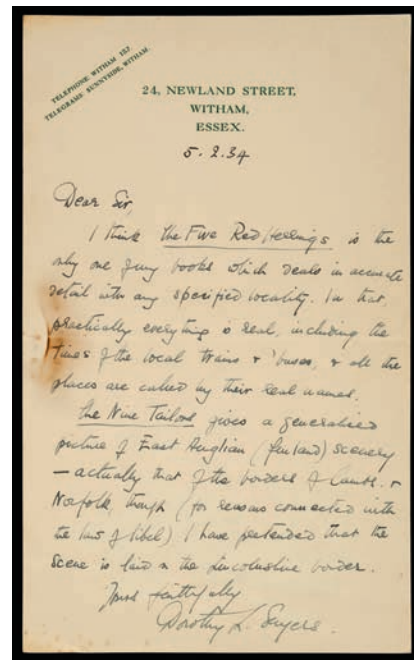 TELEPHONE WITHAM 157.
TELEGRAMS SUNNYSIDE, WITHAM.
24, NEWLAND STREET,
WITHAM,
ESSEX.
5.2.34
Dear Sir,
I think The Five Red Herrings is the
only one of my books which deals in accurate
detail with any specified locality. In that,
practically everything is real, including the
times of the local trains & 'buses, & all the
places are called by their real names.
The Nine Tailors gives a generalised
picture of East Anglian (fenland) scenery
— actually that of the borders of Cambs. &
Norfolk, though (for reasons connected with
the law of libel) I have pretended that the
scene is laid on the Lincolnshire border.
Yours faithfully
Dorothy L. Sayers.